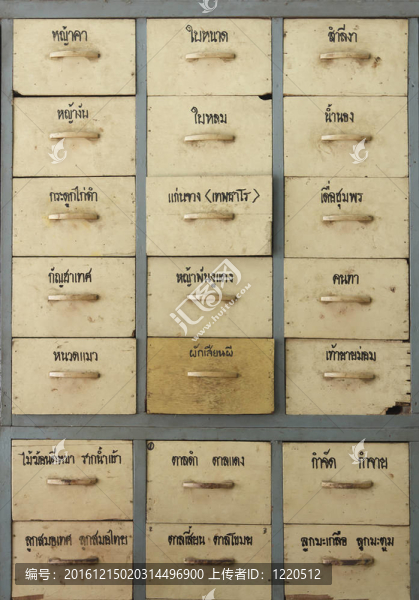 หญ้าคา
ใบหนาด
สำลีงา
หญ้างับ
ใบหลม
น้ำนอง
กระดูกไก่ดำ
แก่นจวง (เทพธาโร)
เดื่อชุมพร
กัญชาเทศ
หญ้าพันงูแดง
คนทา
หนวดแมว
ผักเสี้ยนผี
เท้ายายม่อม
รากน้ำเต้า
ตาลดำ ตาลแดง
กำจัด กำจาย
ลูกสมอเทศ ลูกสมอไทย
ตาลเสี้ยน ตาลโขมย
ลูกมะเกลือ ลูกมะตูม
编号: 20161215020314496900 上传者ID: 1220512